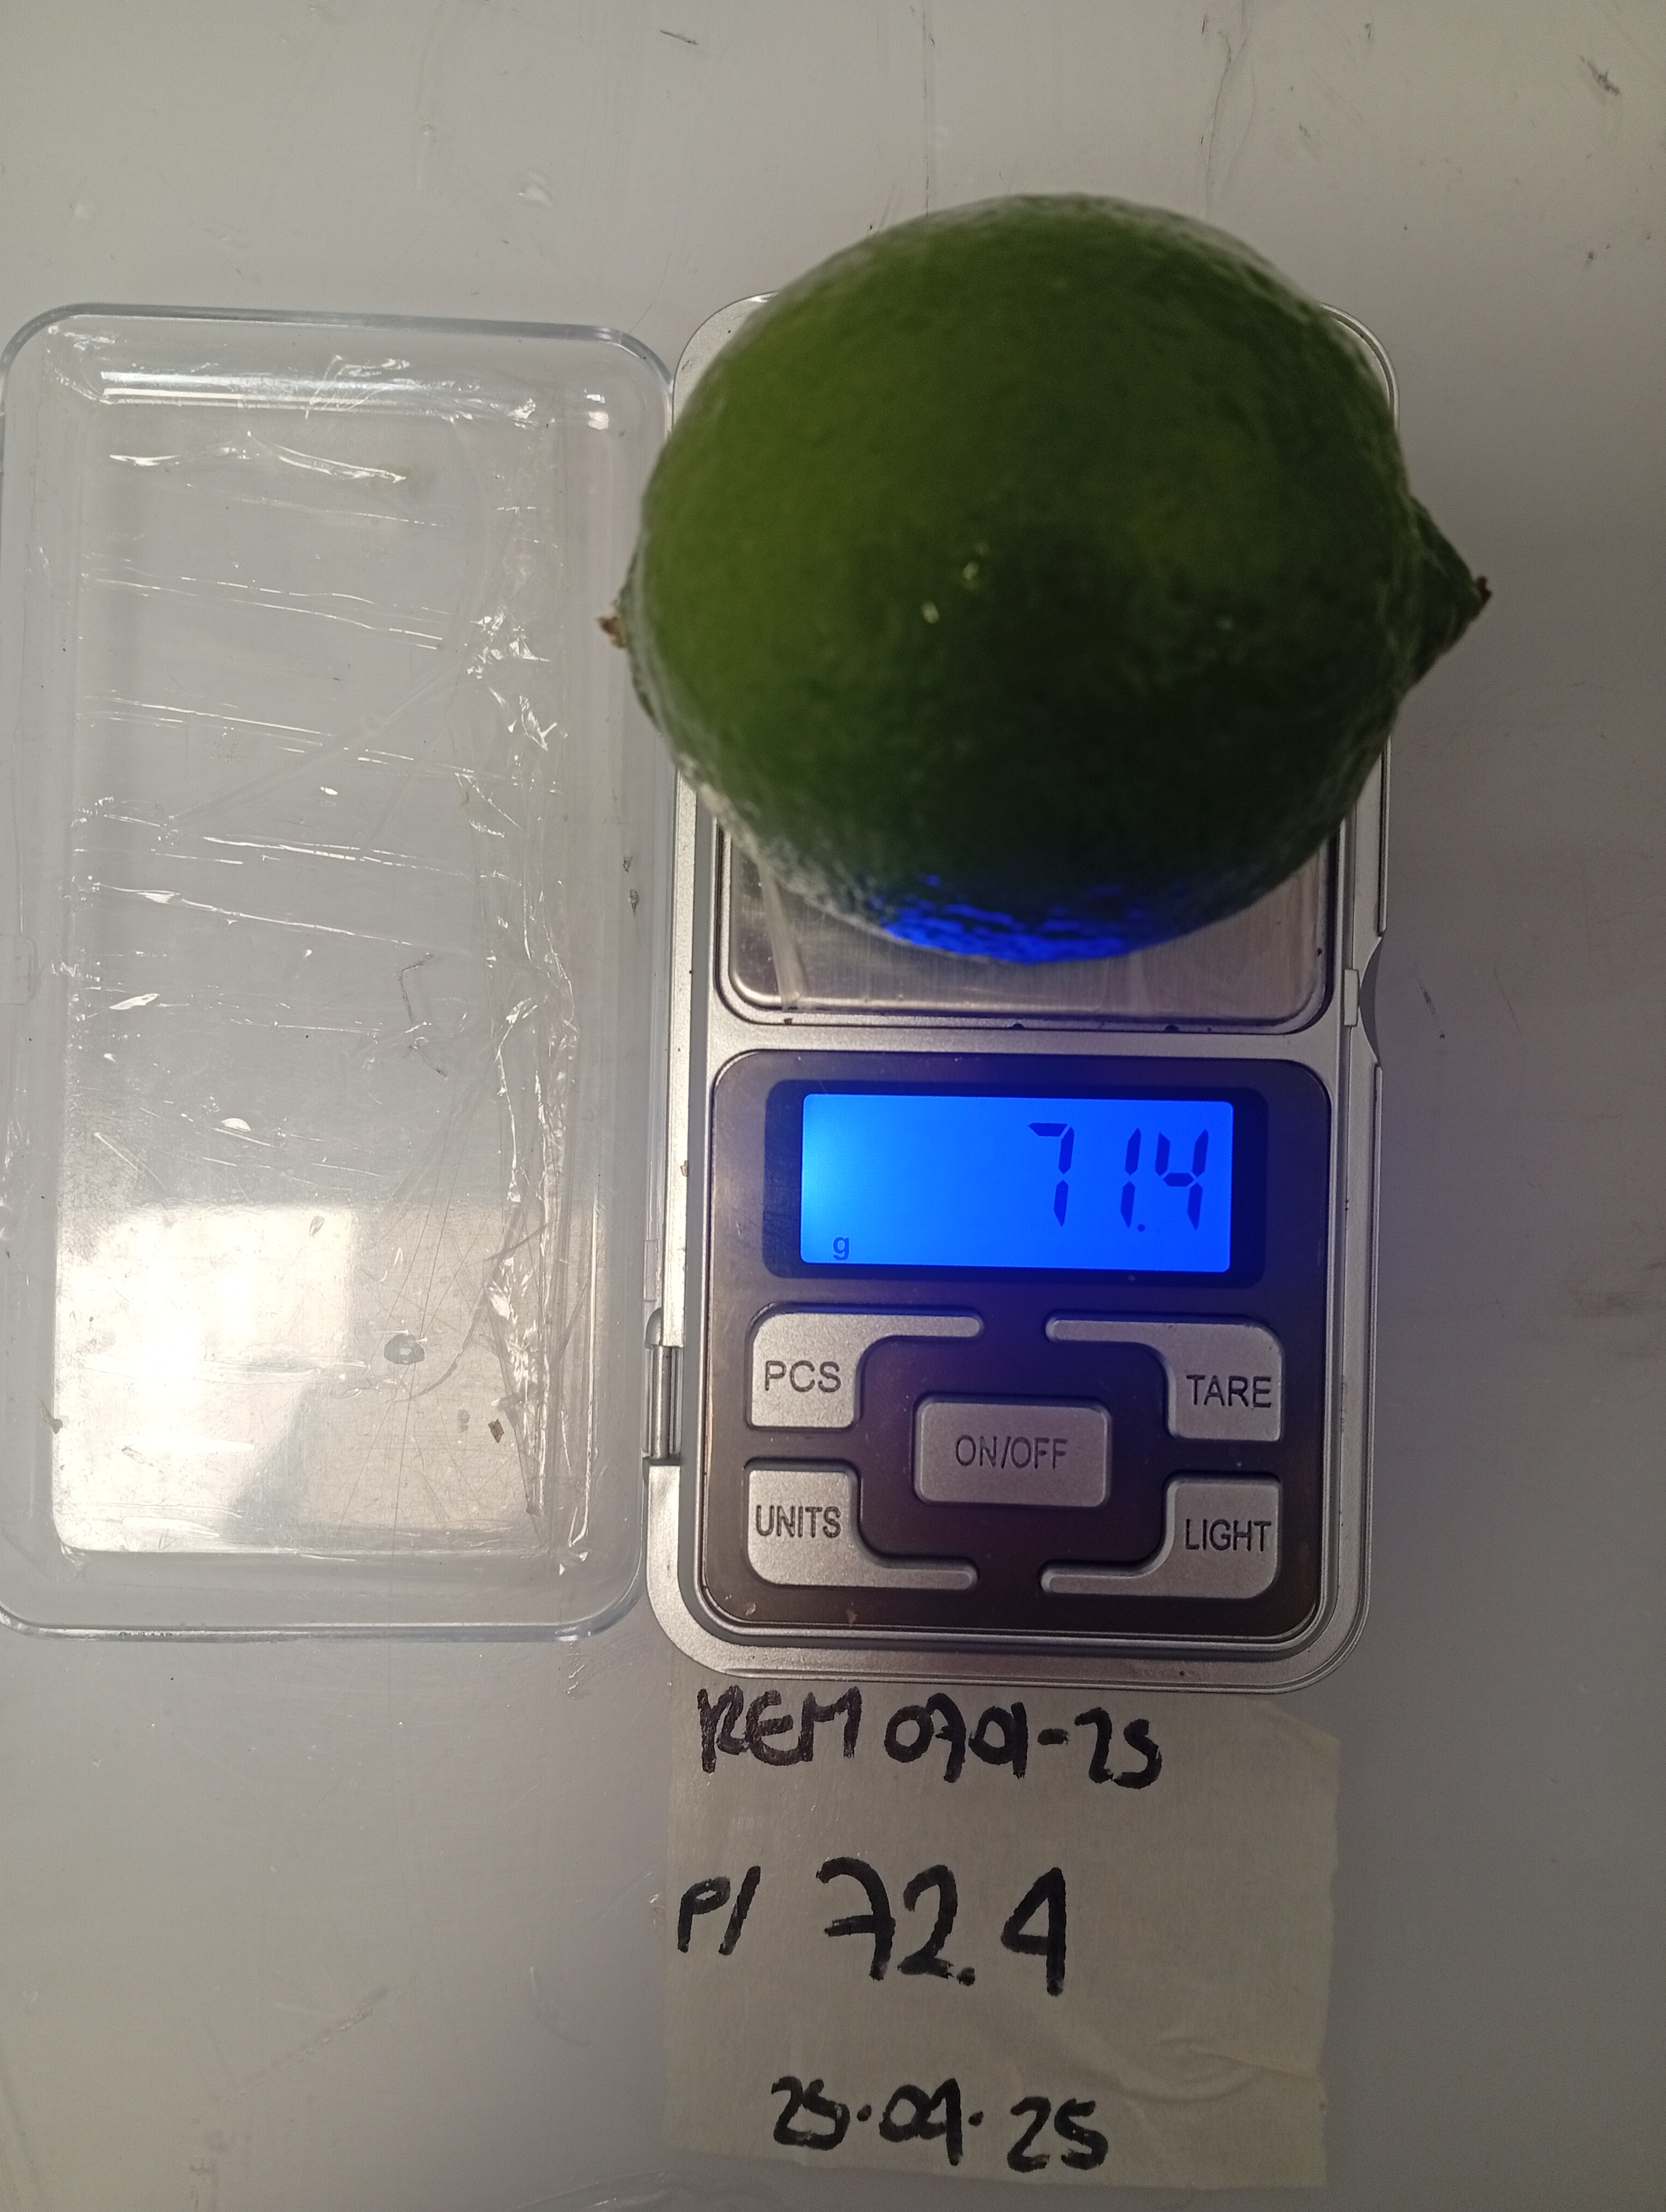 71.4
g
PCS
TARE
ON/OFF
UNITS
LIGHT
REM 0701-25
P/ 72.4
25.09.25